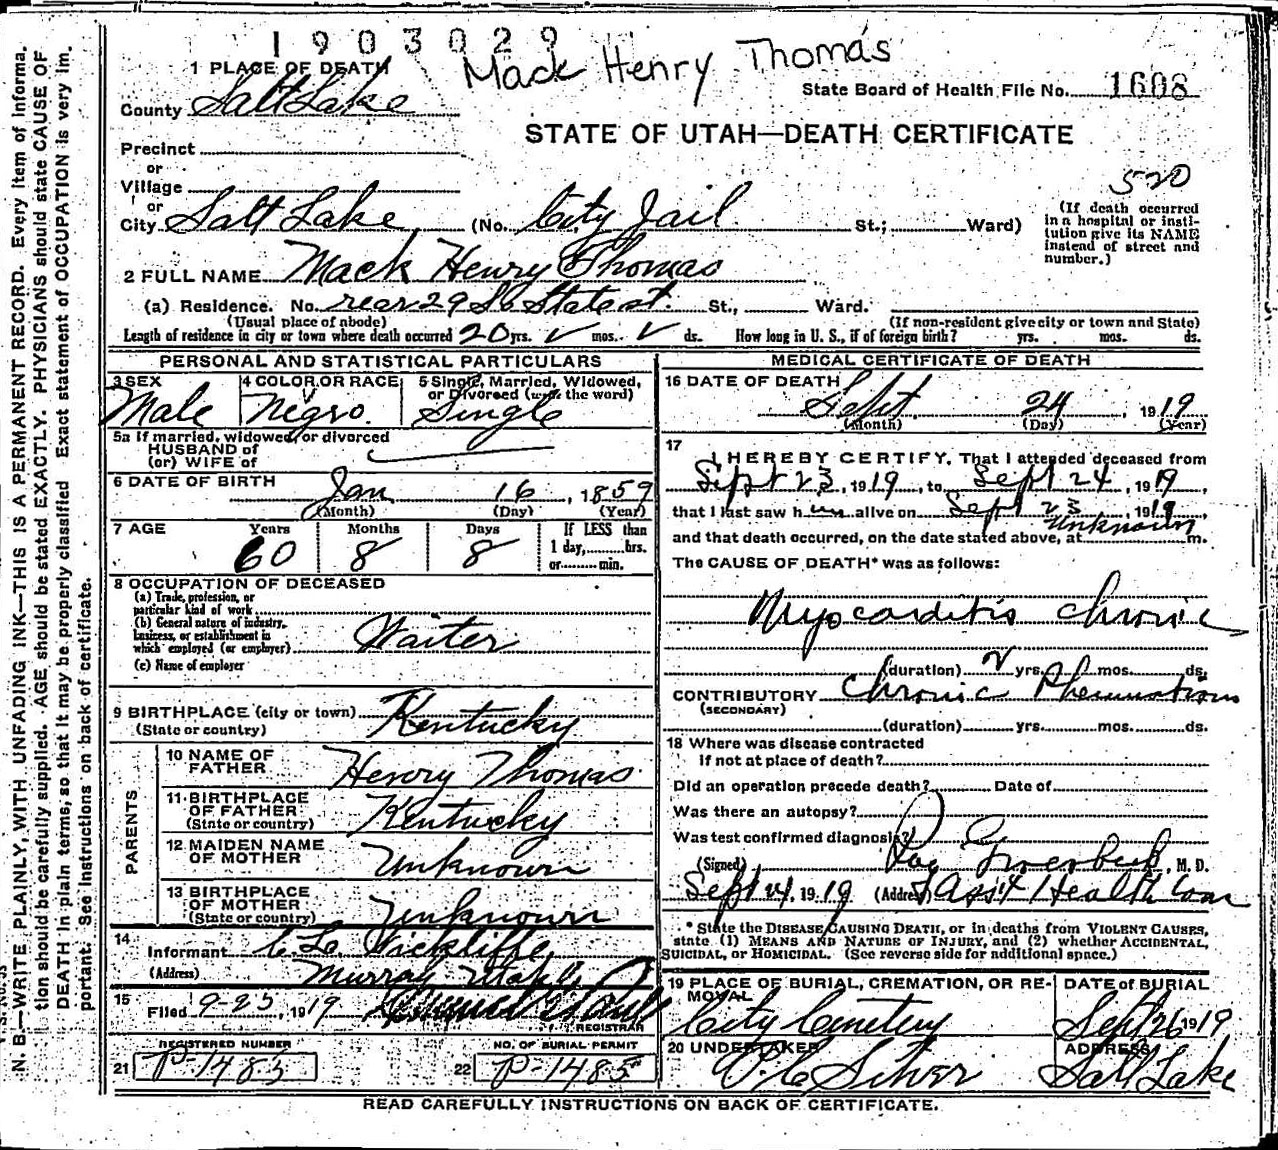 1903029
Mack Henry Thomas
1 PLACE OF DEATH
State Board of Health File No. 1608
County Salt Lake
STATE OF UTAH—DEATH CERTIFICATE
Precinct
or
Village
520
or
City Salt Lake (No. City Jail St.; Ward)
(If death occurred in a hospital or institution give its NAME instead of street and number.)
2 FULL NAME Mack Henry Thomas
(a) Residence. No. rear 29 So State st. St., Ward.
(Usual place of abode) (If non-resident give city or town and State)
Length of residence in city or town where death occurred 20 yrs. mos. ds. How long in U. S., if of foreign birth? yrs. mos. ds.
PERSONAL AND STATISTICAL PARTICULARS
3 SEX 4 COLOR OR RACE 5 Single, Married, Widowed, or Divorced (write the word)
Male Negro. Single
5a If married, widowed, or divorced
HUSBAND of
(or) WIFE of
6 DATE OF BIRTH
Jan 16, 1859
(Month) (Day) (Year)
7 AGE Years Months Days If LESS than
60 8 8 1 day, hrs.
or min.
8 OCCUPATION OF DECEASED
(a) Trade, profession, or
particular kind of work
(b) General nature of industry,
business, or establishment in
which employed (or employer) Waiter
(c) Name of employer
9 BIRTHPLACE (city or town) Kentucky
(State or country)
PARENTS
10 NAME OF
FATHER Henry Thomas
11 BIRTHPLACE
OF FATHER Kentucky
(State or country)
12 MAIDEN NAME
OF MOTHER Unknown
13 BIRTHPLACE
OF MOTHER
(State or country) Unknown
14
Informant C. L. Wickliffe
(Address) Murray Utah
15
Filed 9-25, 1919
REGISTRAR
REGISTERED NUMBER NO. OF BURIAL PERMIT
21 P-1485 22 P-1485
MEDICAL CERTIFICATE OF DEATH
16 DATE OF DEATH
Sept. 24, 1919
(Month) (Day) (Year)
17
I HEREBY CERTIFY, That I attended deceased from
Sept 23, 1919, to Sept 24, 1919,
that I last saw him alive on Sept 23, 1919,
and that death occurred, on the date stated above, at Unknown m.
The CAUSE OF DEATH* was as follows:
Myocarditis Chronic
(duration) yrs. mos. ds.
CONTRIBUTORY Chronic Rheumatism
(SECONDARY)
(duration) yrs. mos. ds.
18 Where was disease contracted
if not at place of death?
Did an operation precede death? Date of
Was there an autopsy?
Was test confirmed diagnosis?
(Signed) M. D.
Sept 24, 1919 (Address) Asst Health Com
* State the DISEASE CAUSING DEATH, or in deaths from VIOLENT CAUSES,
state (1) MEANS AND NATURE OF INJURY, and (2) whether ACCIDENTAL,
SUICIDAL, or HOMICIDAL. (See reverse side for additional space.)
19 PLACE OF BURIAL, CREMATION, OR RE- DATE of BURIAL
MOVAL
City Cemetery Sept 26 1919
20 UNDERTAKER ADDRESS
Salt Lake
READ CAREFULLY INSTRUCTIONS ON BACK OF CERTIFICATE.
N. B.—WRITE PLAINLY, WITH UNFADING INK—THIS IS A PERMANENT RECORD. Every item of informa-
tion should be carefully supplied. AGE should be stated EXACTLY. PHYSICIANS should state CAUSE OF
DEATH in plain terms, so that it may be properly classified. Exact statement of OCCUPATION is very im-
portant. See instructions on back of certificate.